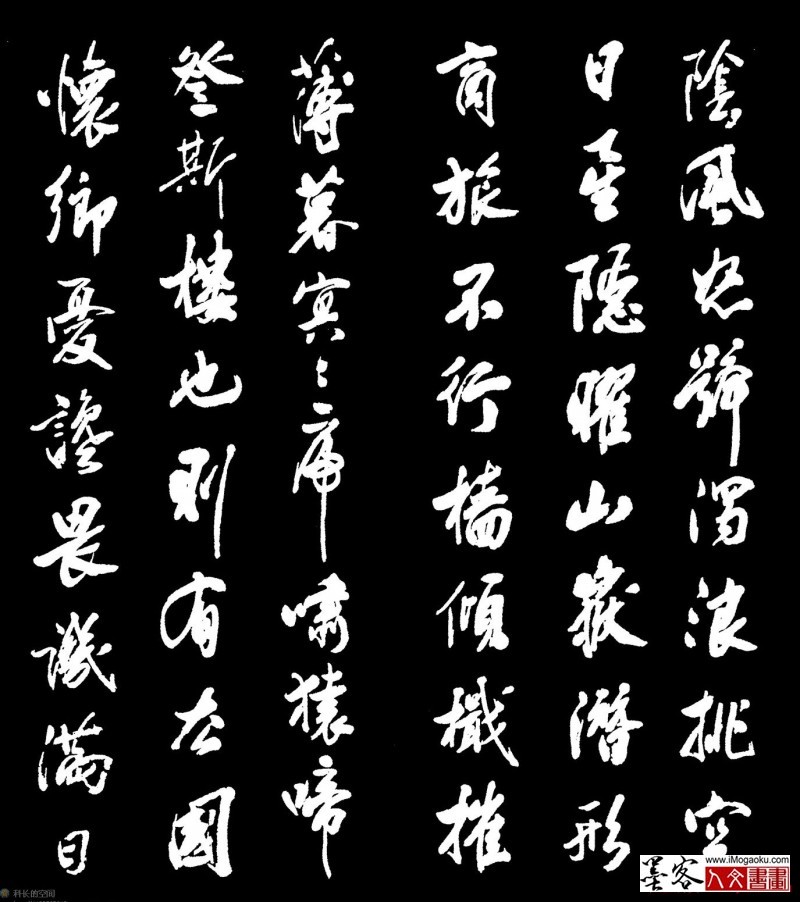 陰風怒號濁浪排空
日星隱曜山嶽潛形
商旅不行檣傾檝摧
薄暮冥〻虎嘯猿啼
登斯樓也則有去國
懷鄉憂讒畏譏滿目
墨客
www.iMogaoku.com
人文書畫
科长的空间